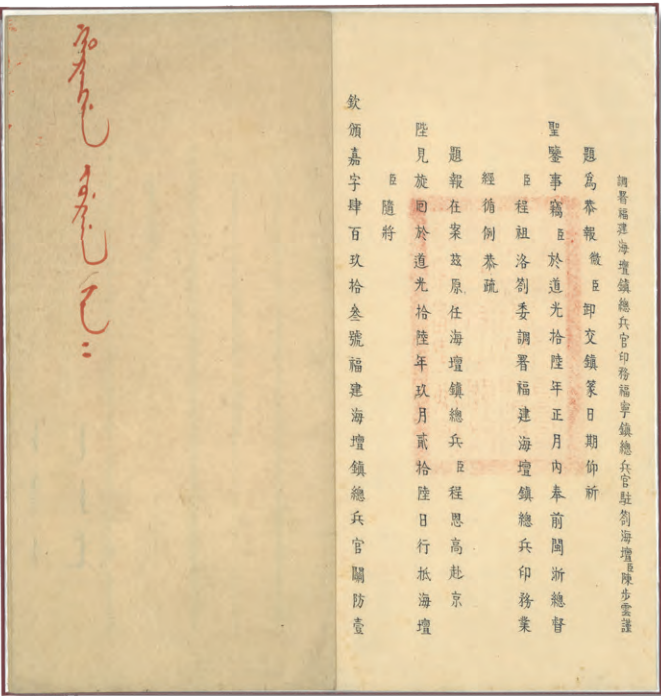 調署福建海壇鎮總兵官印務福寧鎮總兵官駐劄海壇臣陳步雲謹
題爲恭報微臣卸交鎮篆日期仰祈
聖鑒事竊臣於道光拾陸年正月內奉前閩浙總督
臣程祖洛劄委調署福建海壇鎮總兵印務業
經循例恭疏
題報在案茲原任海壇鎮總兵臣程恩高赴京
陛見旋回於道光拾陸年玖月貳拾陸日行抵海壇
臣隨將
欽頒嘉字肆百玖拾叁號福建海壇鎮總兵官關防壹